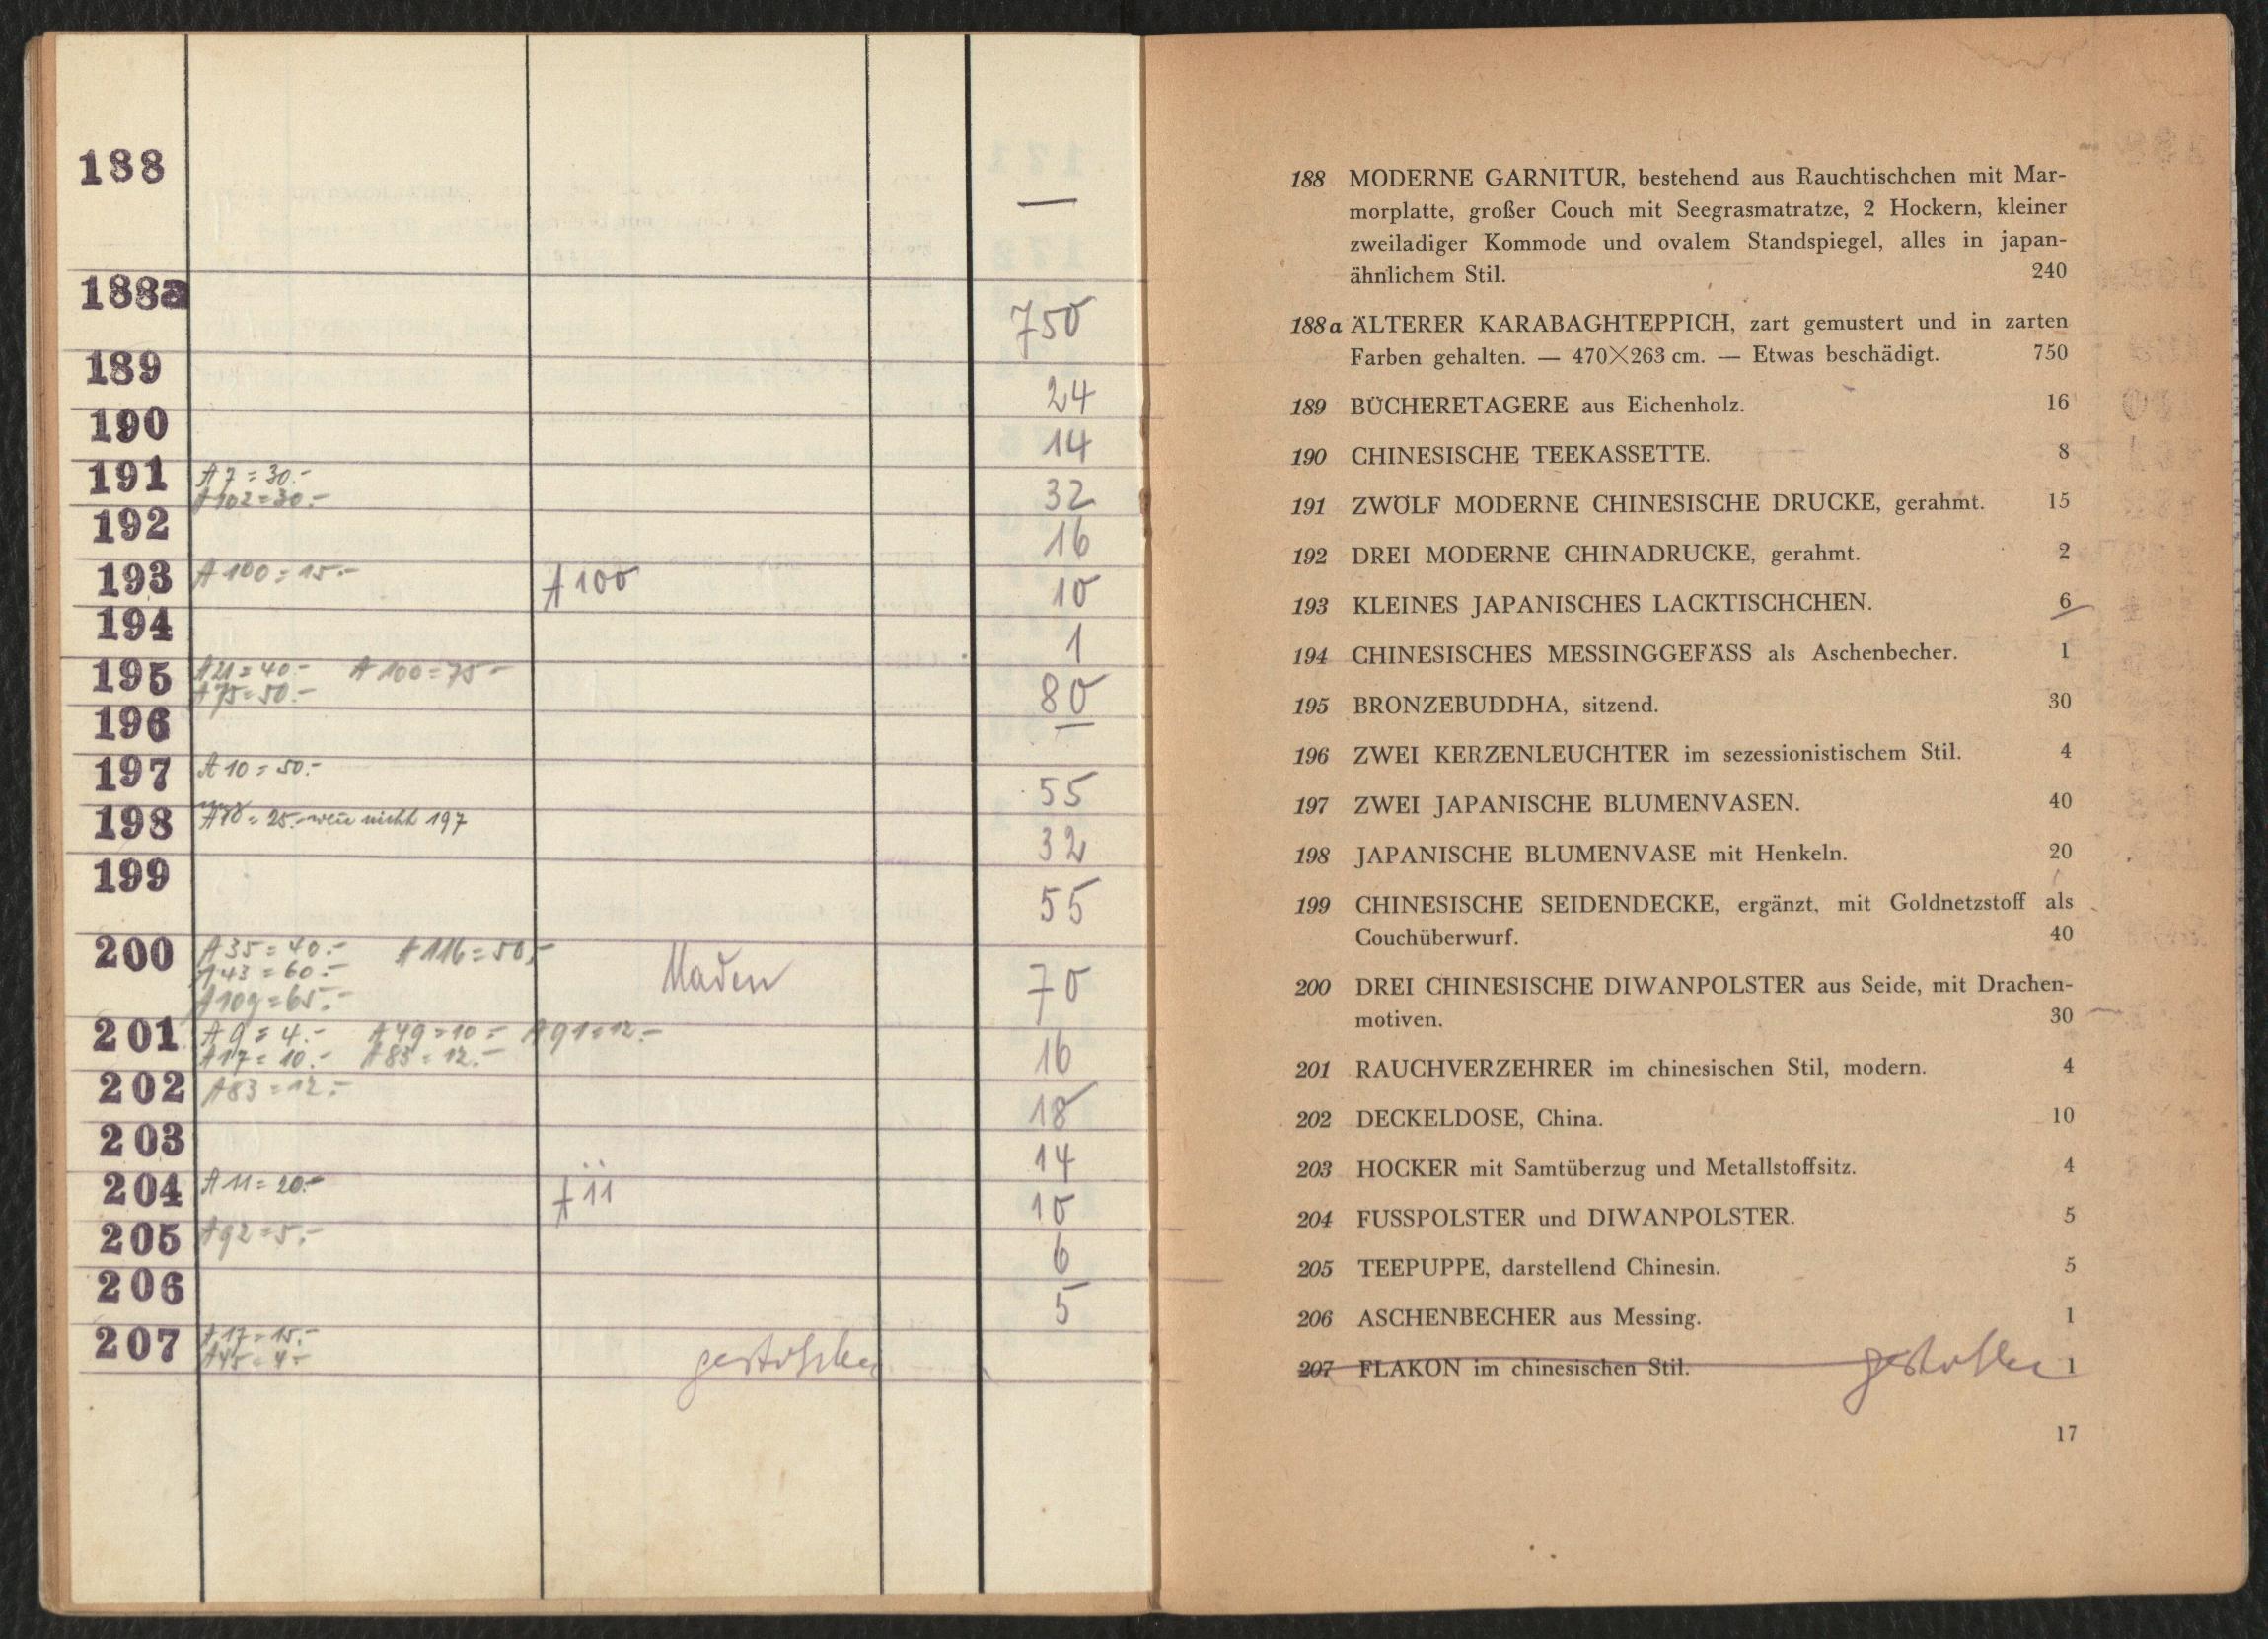 188 —
188a 750
189 24
190 14
191 A 7 = 30.- 32
A 102 = 30.-
192 16
193 A 100 = 15.- A 100 10
194 1
195 A 21 = 40.- A 100 = 75.- 80
A 75 = 50.-
196 —
197 A 10 = 50.- 55
198 A 10 = 25.- wenn nicht 197 32
199 55
200 A 35 = 40.- A 116 = 50.- 70
A 43 = 60.-
A 109 = 65.-
201 A 9 = 4.- A 49 = 10.- A 91 = 12.- 16
A 17 = 10.- A 83 = 12.-
202 A 83 = 12.- 18
203 14
204 A 11 = 20.- A 11 10
205 A 92 = 5.- 6
206 5
207 A 17 = 15.- gestohlen
A 45 = 4.-
188 MODERNE GARNITUR, bestehend aus Rauchtischchen mit Mar-
morplatte, großer Couch mit Seegrasmatratze, 2 Hockern, kleiner
zweiladiger Kommode und ovalem Standspiegel, alles in japan-
ähnlichem Stil. 240
188 a ÄLTERER KARABAGHTEPPICH, zart gemustert und in zarten
Farben gehalten. — 470×263 cm. — Etwas beschädigt. 750
189 BÜCHERETAGERE aus Eichenholz. 16
190 CHINESISCHE TEEKASSETTE. 8
191 ZWÖLF MODERNE CHINESISCHE DRUCKE, gerahmt. 15
192 DREI MODERNE CHINADRUCKE, gerahmt. 2
193 KLEINES JAPANISCHES LACKTISCHCHEN. 6
194 CHINESISCHES MESSINGGEFÄSS als Aschenbecher. 1
195 BRONZEBUDDHA, sitzend. 30
196 ZWEI KERZENLEUCHTER im sezessionistischem Stil. 4
197 ZWEI JAPANISCHE BLUMENVASEN. 40
198 JAPANISCHE BLUMENVASE mit Henkeln. 20
199 CHINESISCHE SEIDENDECKE, ergänzt, mit Goldnetzstoff als
Couchüberwurf. 40
200 DREI CHINESISCHE DIWANPOLSTER aus Seide, mit Drachen-
motiven. 30
201 RAUCHVERZEHRER im chinesischen Stil, modern. 4
202 DECKELDOSE, China. 10
203 HOCKER mit Samtüberzug und Metallstoffsitz. 4
204 FUSSPOLSTER und DIWANPOLSTER. 5
205 TEEPUPPE, darstellend Chinesin. 5
206 ASCHENBECHER aus Messing. 1
207 FLAKON im chinesischen Stil. gestohlen 1
17